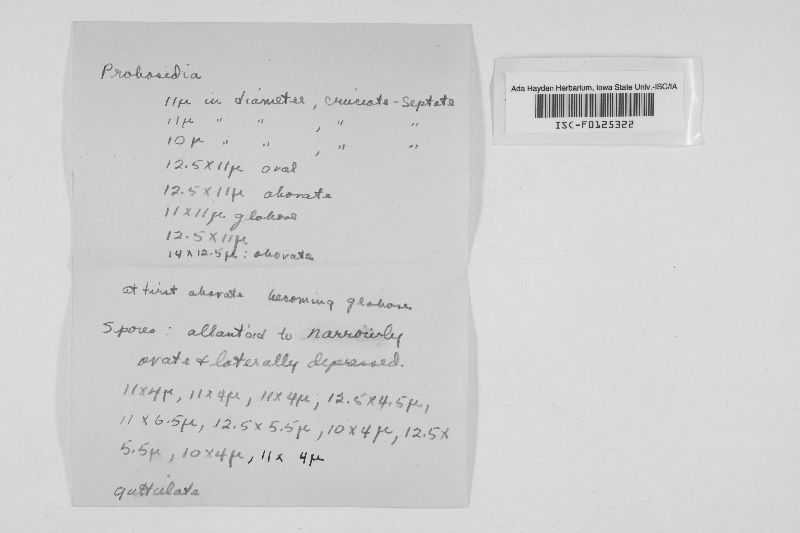 Probasidia
11µ in diameter, cruciate-septate
11µ " " , " "
10µ " " , " "
12.5 X 11µ oval
12.5 X 11µ obovate
11 X 11µ globose
12.5 X 11µ
14 X 12.5µ : obovate
at first obovate becoming globose
Spores : allantoid to narrowly
ovate & laterally depressed.
11x4µ, 11x4µ, 11x4µ, 12.5x4.5µ,
11 x 6.5µ, 12.5 x 5.5µ, 10 x 4µ, 12.5 x
5.5µ, 10x4µ, 11x 4µ
guttulate
Ada Hayden Herbarium, Iowa State Univ.-ISC/IA
ISC-F0125322